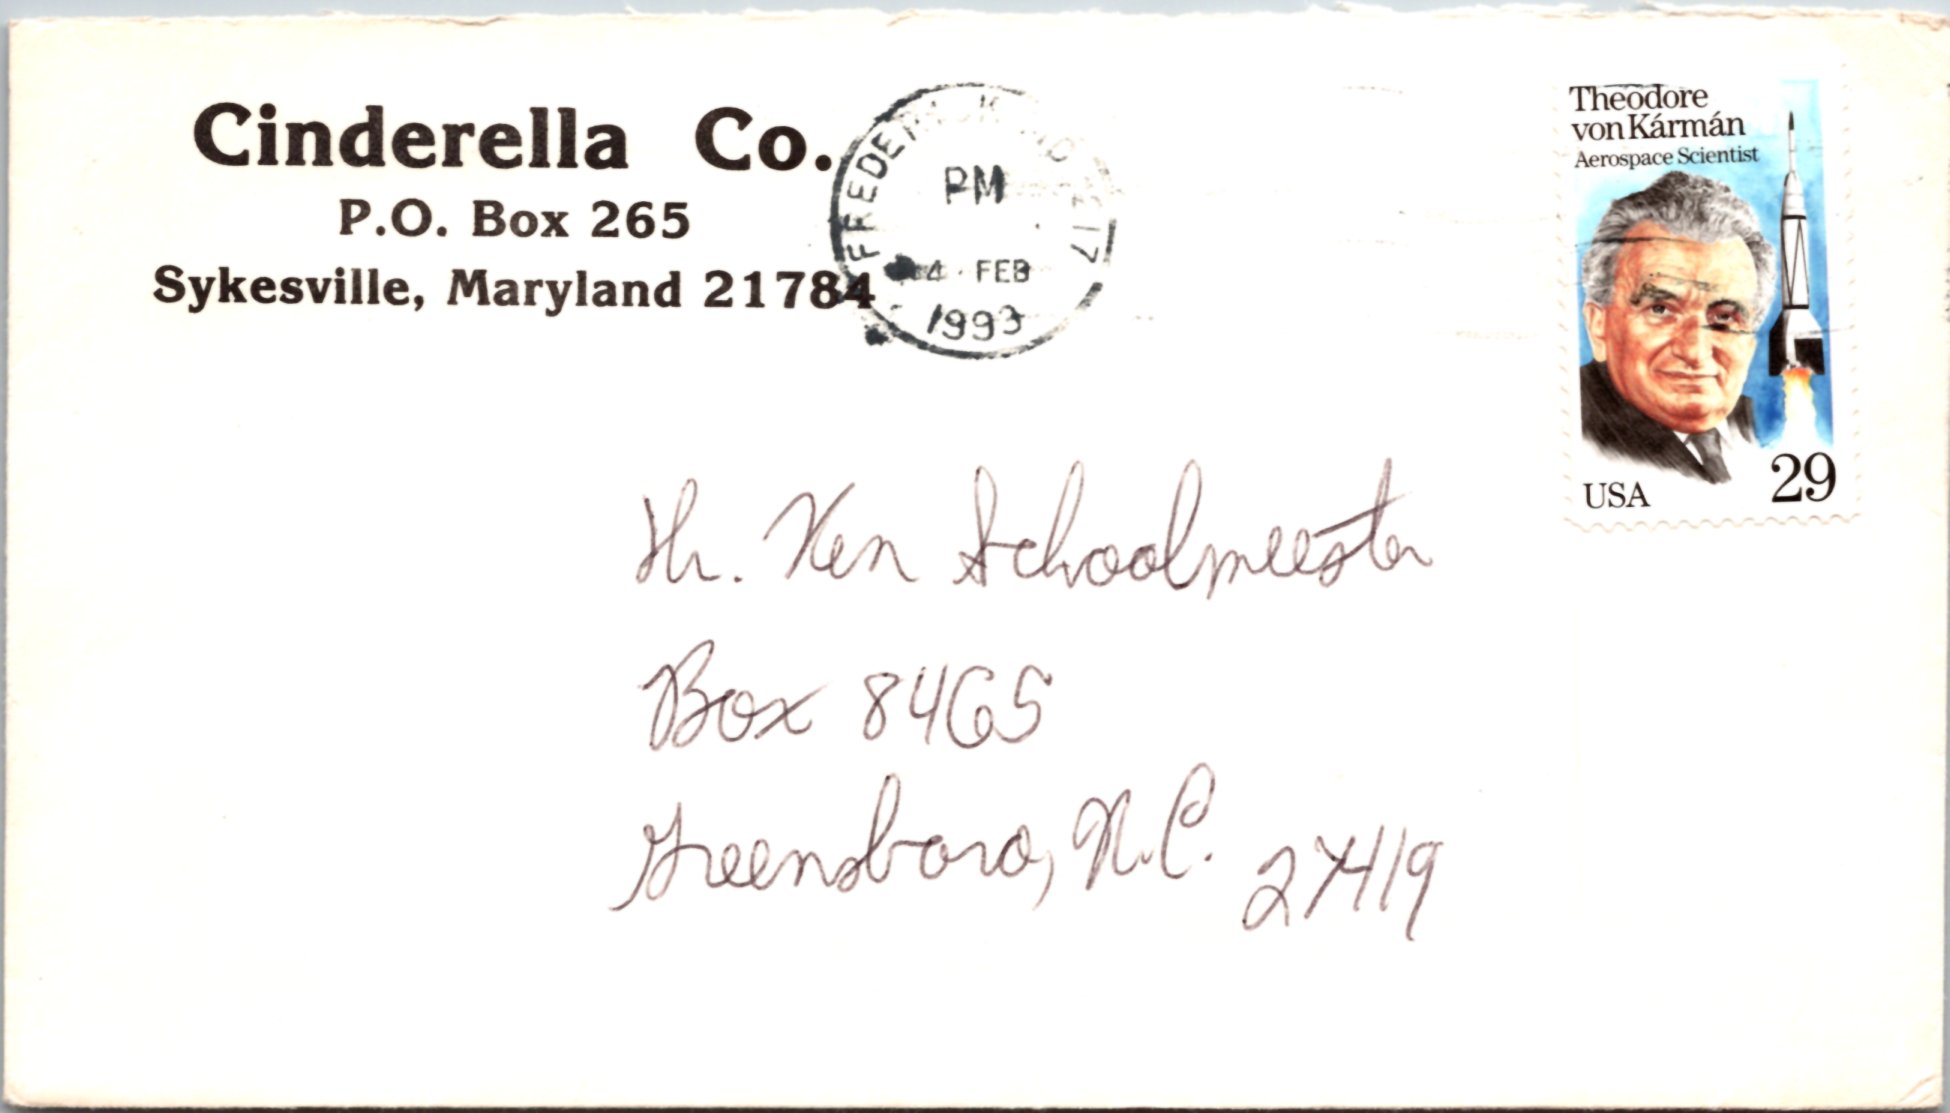 Cinderella Co.
P.O. Box 265
Sykesville, Maryland 21784
FREDERICK MD 217
PM
4 FEB
1993
Theodore
von Kármán
Aerospace Scientist
USA 29
Mr. Ken Schoolmeester
Box 8465
Greensboro, N.C. 27419